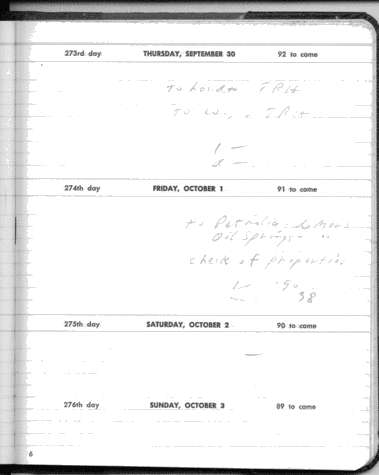 273rd day THURSDAY, SEPTEMBER 30 92 to come
To London TRIH
To
1 —
2 —
274th day FRIDAY, OCTOBER 1 91 to come
to Petrolia
Oil Springs - "
check of properties
90
38
275th day SATURDAY, OCTOBER 2 90 to come
—
276th day SUNDAY, OCTOBER 3 89 to come
6